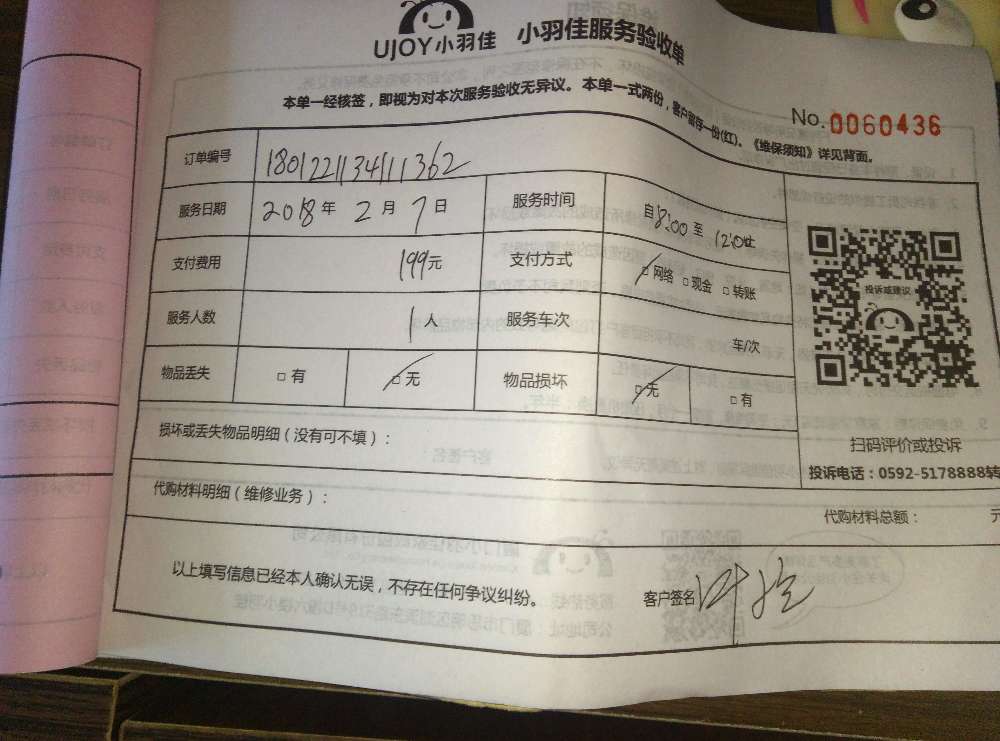 UJOY小羽佳 小羽佳服务验收单
本单一经核签，即视为对本次服务验收无异议。本单一式两份，客户留存一份(红)。《维保须知》详见背面。
No. 0060436
订单编号 180122113411362
服务日期 2018年2月7日 服务时间 自8:00至12:0止
支付费用 199元 支付方式 □网络 □现金 □转账
投诉或建议
服务人数 1人 服务车次 车/次
物品丢失 □有 □无 物品损坏 □无 □有
损坏或丢失物品明细（没有可不填）：
扫码评价或投诉
投诉电话：0592-5178888转
代购材料明细（维修业务）：
代购材料总额： 元
以上填写信息已经本人确认无误，不存在任何争议纠纷。 客户签名